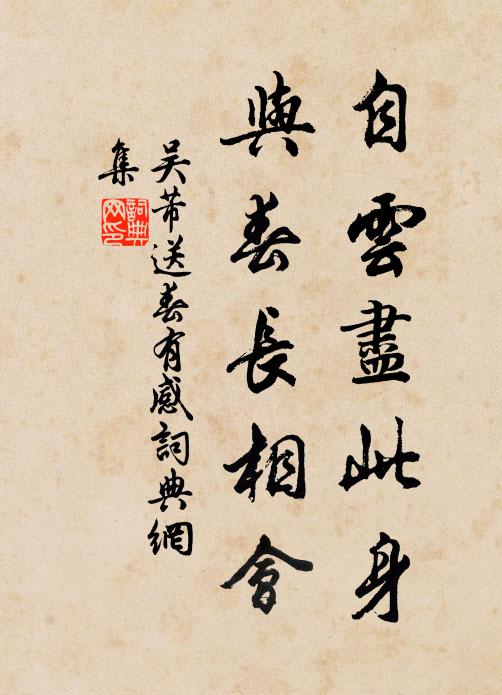 自雲盡此身
與春長相會
吴芾送春有感詞典網
集
詞典
网印